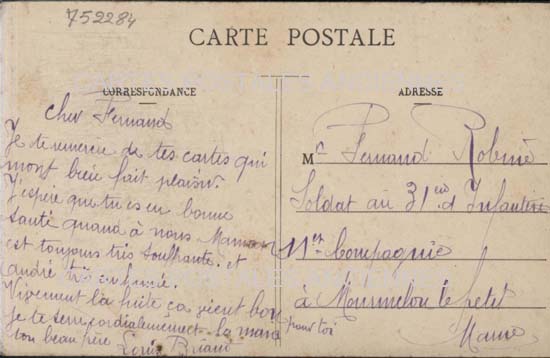 752284
CARTE POSTALE
CORRESPONDANCE
ADRESSE
cher Fernand
Je te remercie de tes cartes qui
mont bien fait plaisir.
J'espère que tu es en bonne
santé quand à nous Maman
est toujours très souffrante. et
andré très enrhumé.
Vivement la
ça vient bon pour toi
Je te serre cordialement la main
ton beau père Louis Briand
Mr Fernand
Soldat au 31em d'Infanterie
11em Compagnie
à Mourmelon le petit
Marne